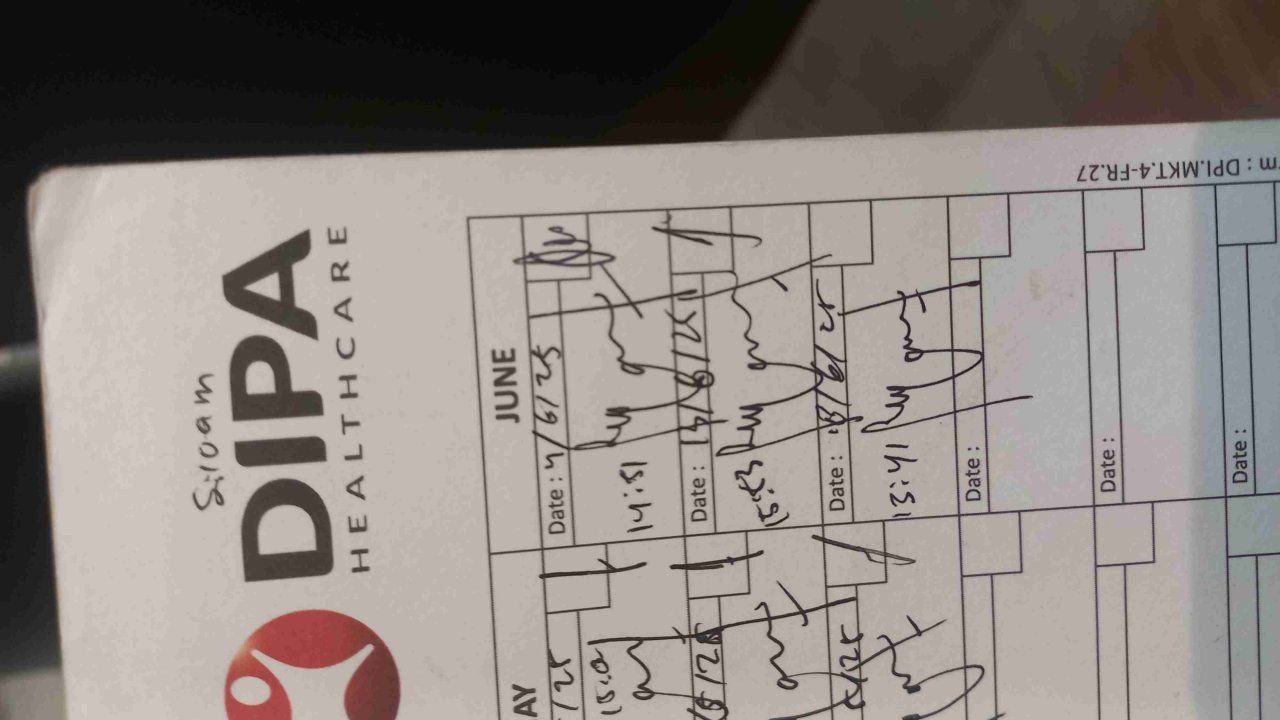 Siroam
DIPA
HEALTHCARE
JUNE
Date : 4/6/25
14:51
Date : 13/6/25
15:53
Date : 18/6/25
13:41
Date :
Date :
Date :
AY
/25
15:0
/25
/25
m : DPI.MKT.4-FR.27